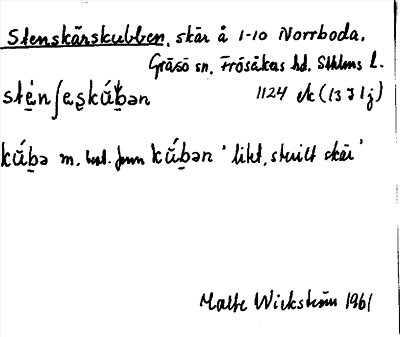 Stenskärskubben, skär å 1-10 Norrboda,
Gräsö sn, Frösåkers hd. Sthlms l.
stḛ́nʃeʂkṵ́bən 1124 ek (13 I 1 j)
kṵ́bə m. best. form kṵ́bən 'likt, skilt skär'
Malte Wickström 1961